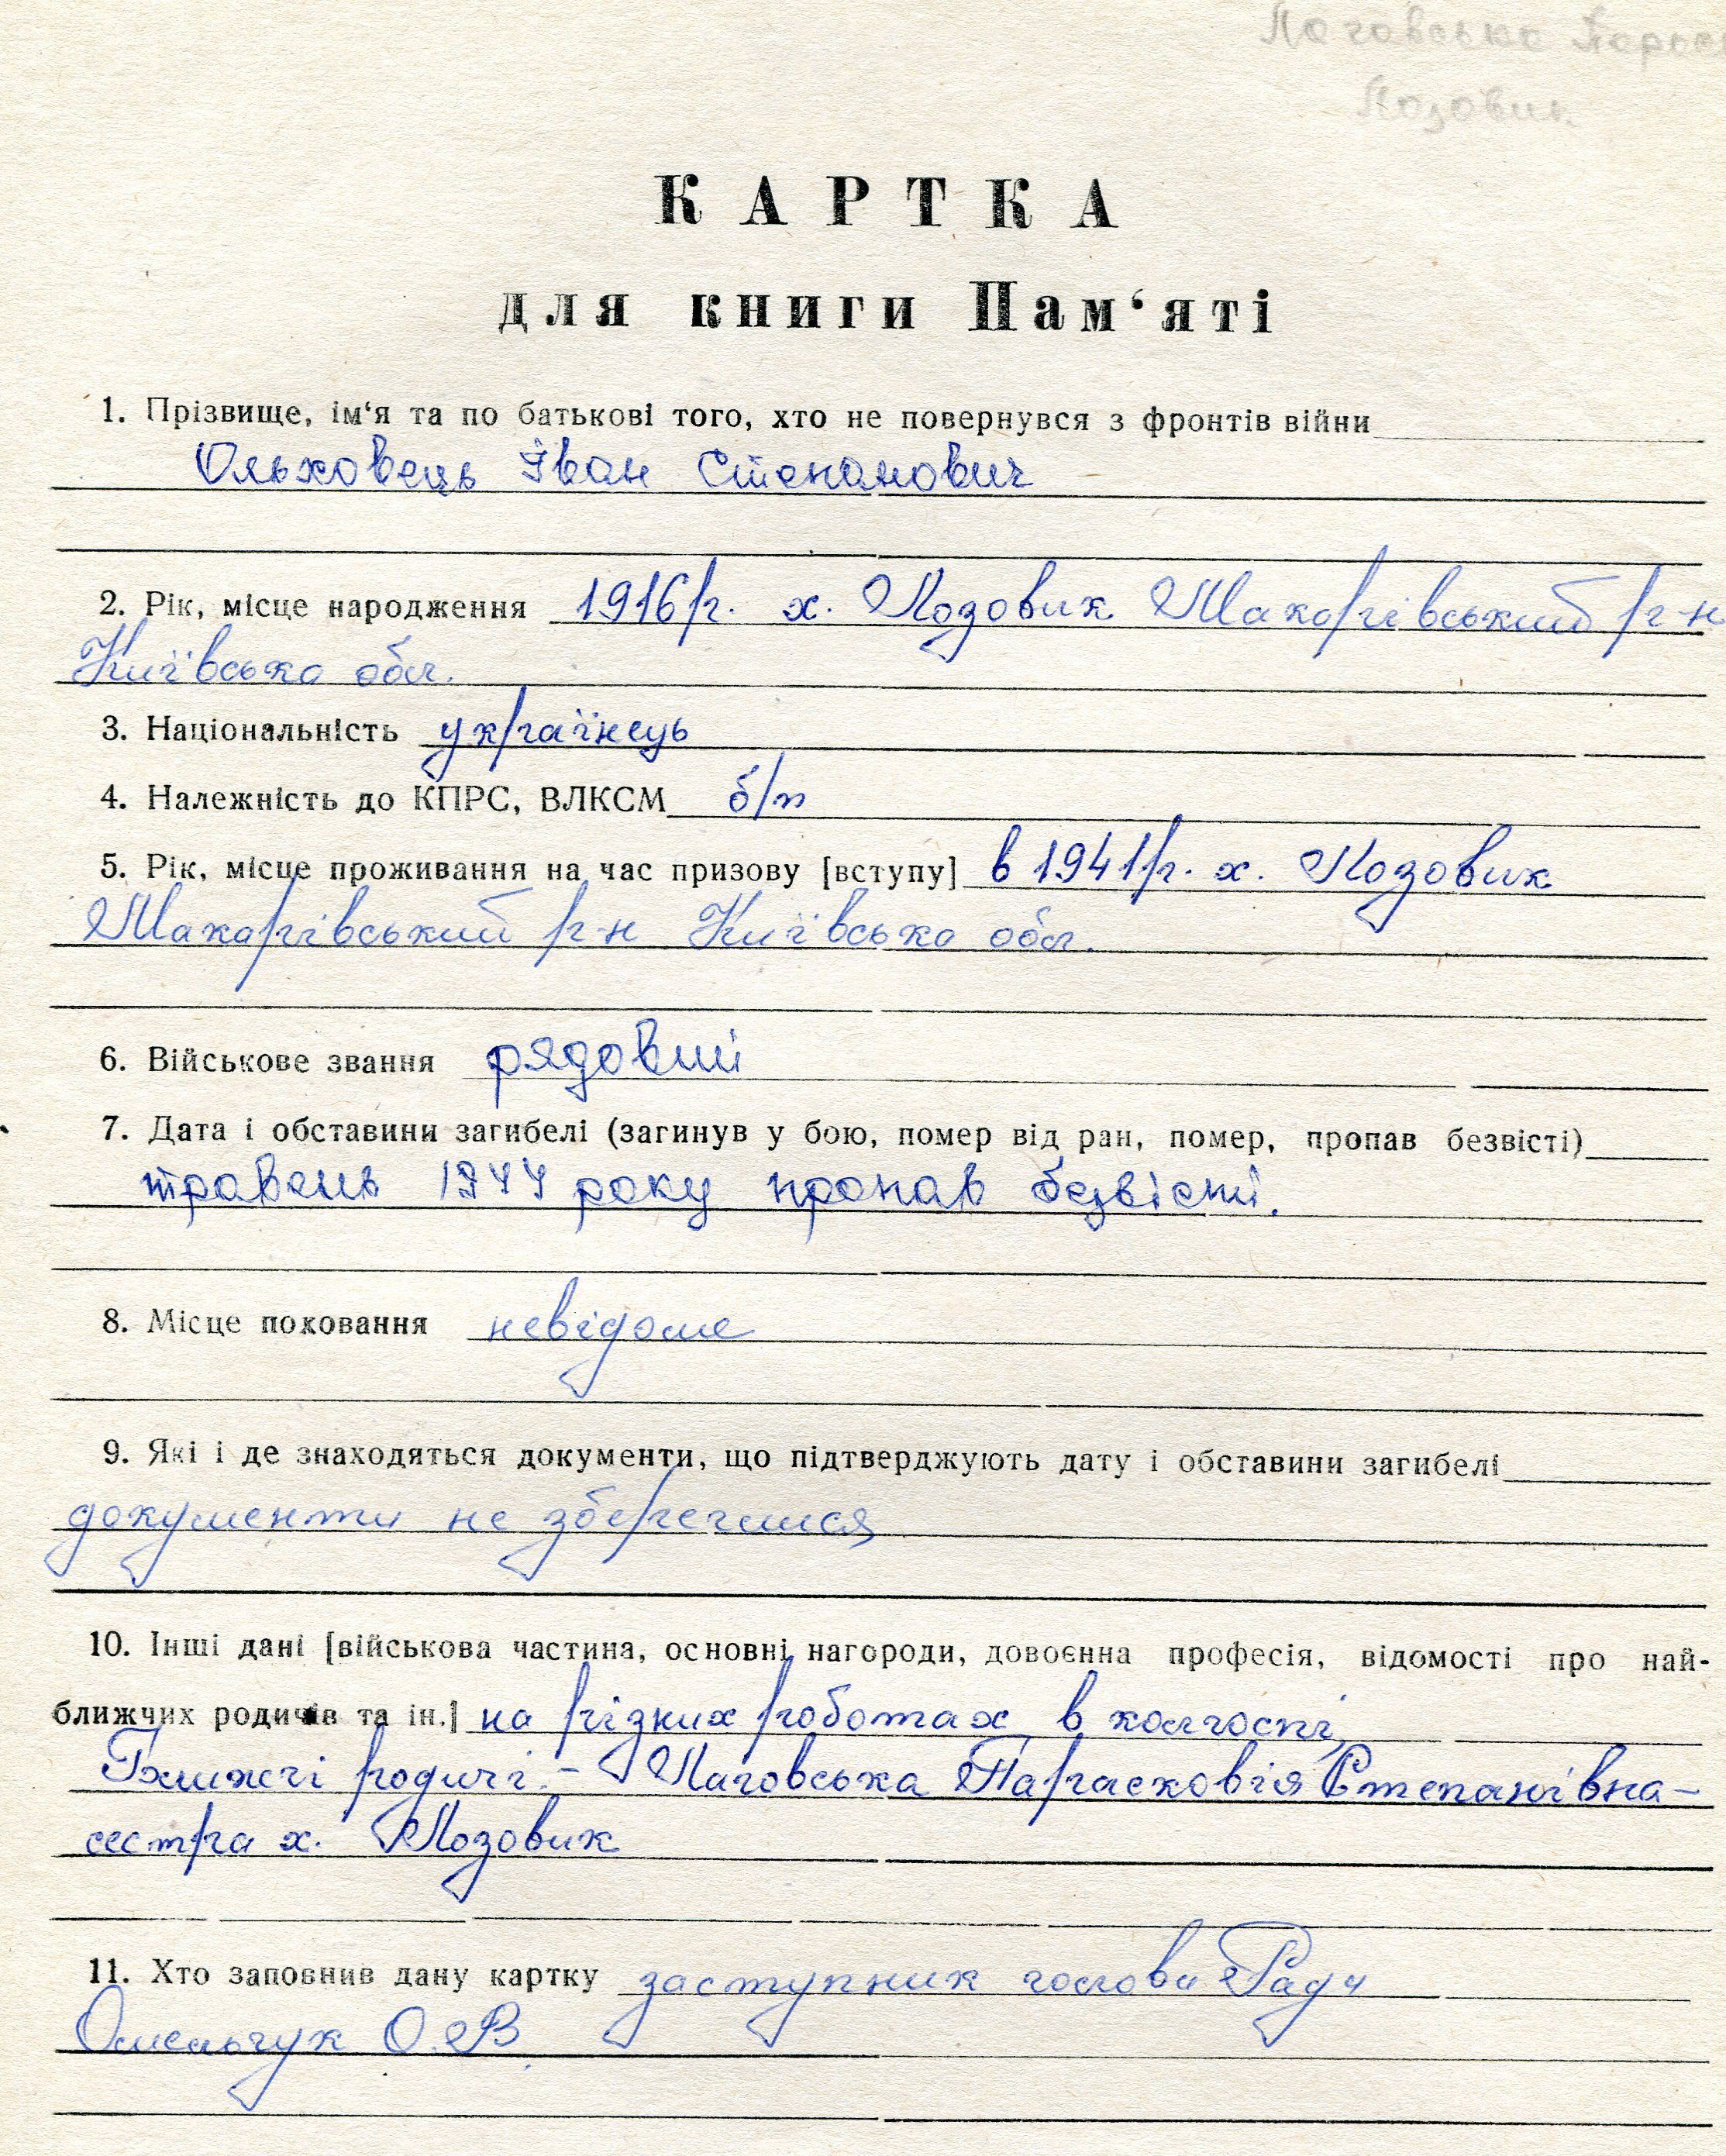 Лозовик
КАРТКА
для книги Пам‘яті
1. Прізвище, ім‘я та по батькові того, хто не повернувся з фронтів війни
Ольховець Іван Степанович
2. Рік, місце народження 1916р. х. Лозовик Макарівський р-н
Київська обл.
3. Національність українець
4. Належність до КПРС, ВЛКСМ б/п
5. Рік, місце проживання на час призову [вступу] в 1941р. х. Лозовик
Макарівський р-н Київська обл.
6. Військове звання рядовий
7. Дата і обставини загибелі (загинув у бою, помер від ран, помер, пропав безвісті)
травень 1944 року пропав безвісті.
8. Місце поховання невідоме
9. Які і де знаходяться документи, що підтверджують дату і обставини загибелі
документи не збереглися
10. Інші дані [військова частина, основні нагороди, довоєнна професія, відомості про най-
ближчих родичів та ін.] на різних роботах в колгоспі,
Ближчі родичі - Парасковія Степанівна -
сестра х. Лозовик
11. Хто заповнив дану картку заступник голови Ради
Омельчук О.В.